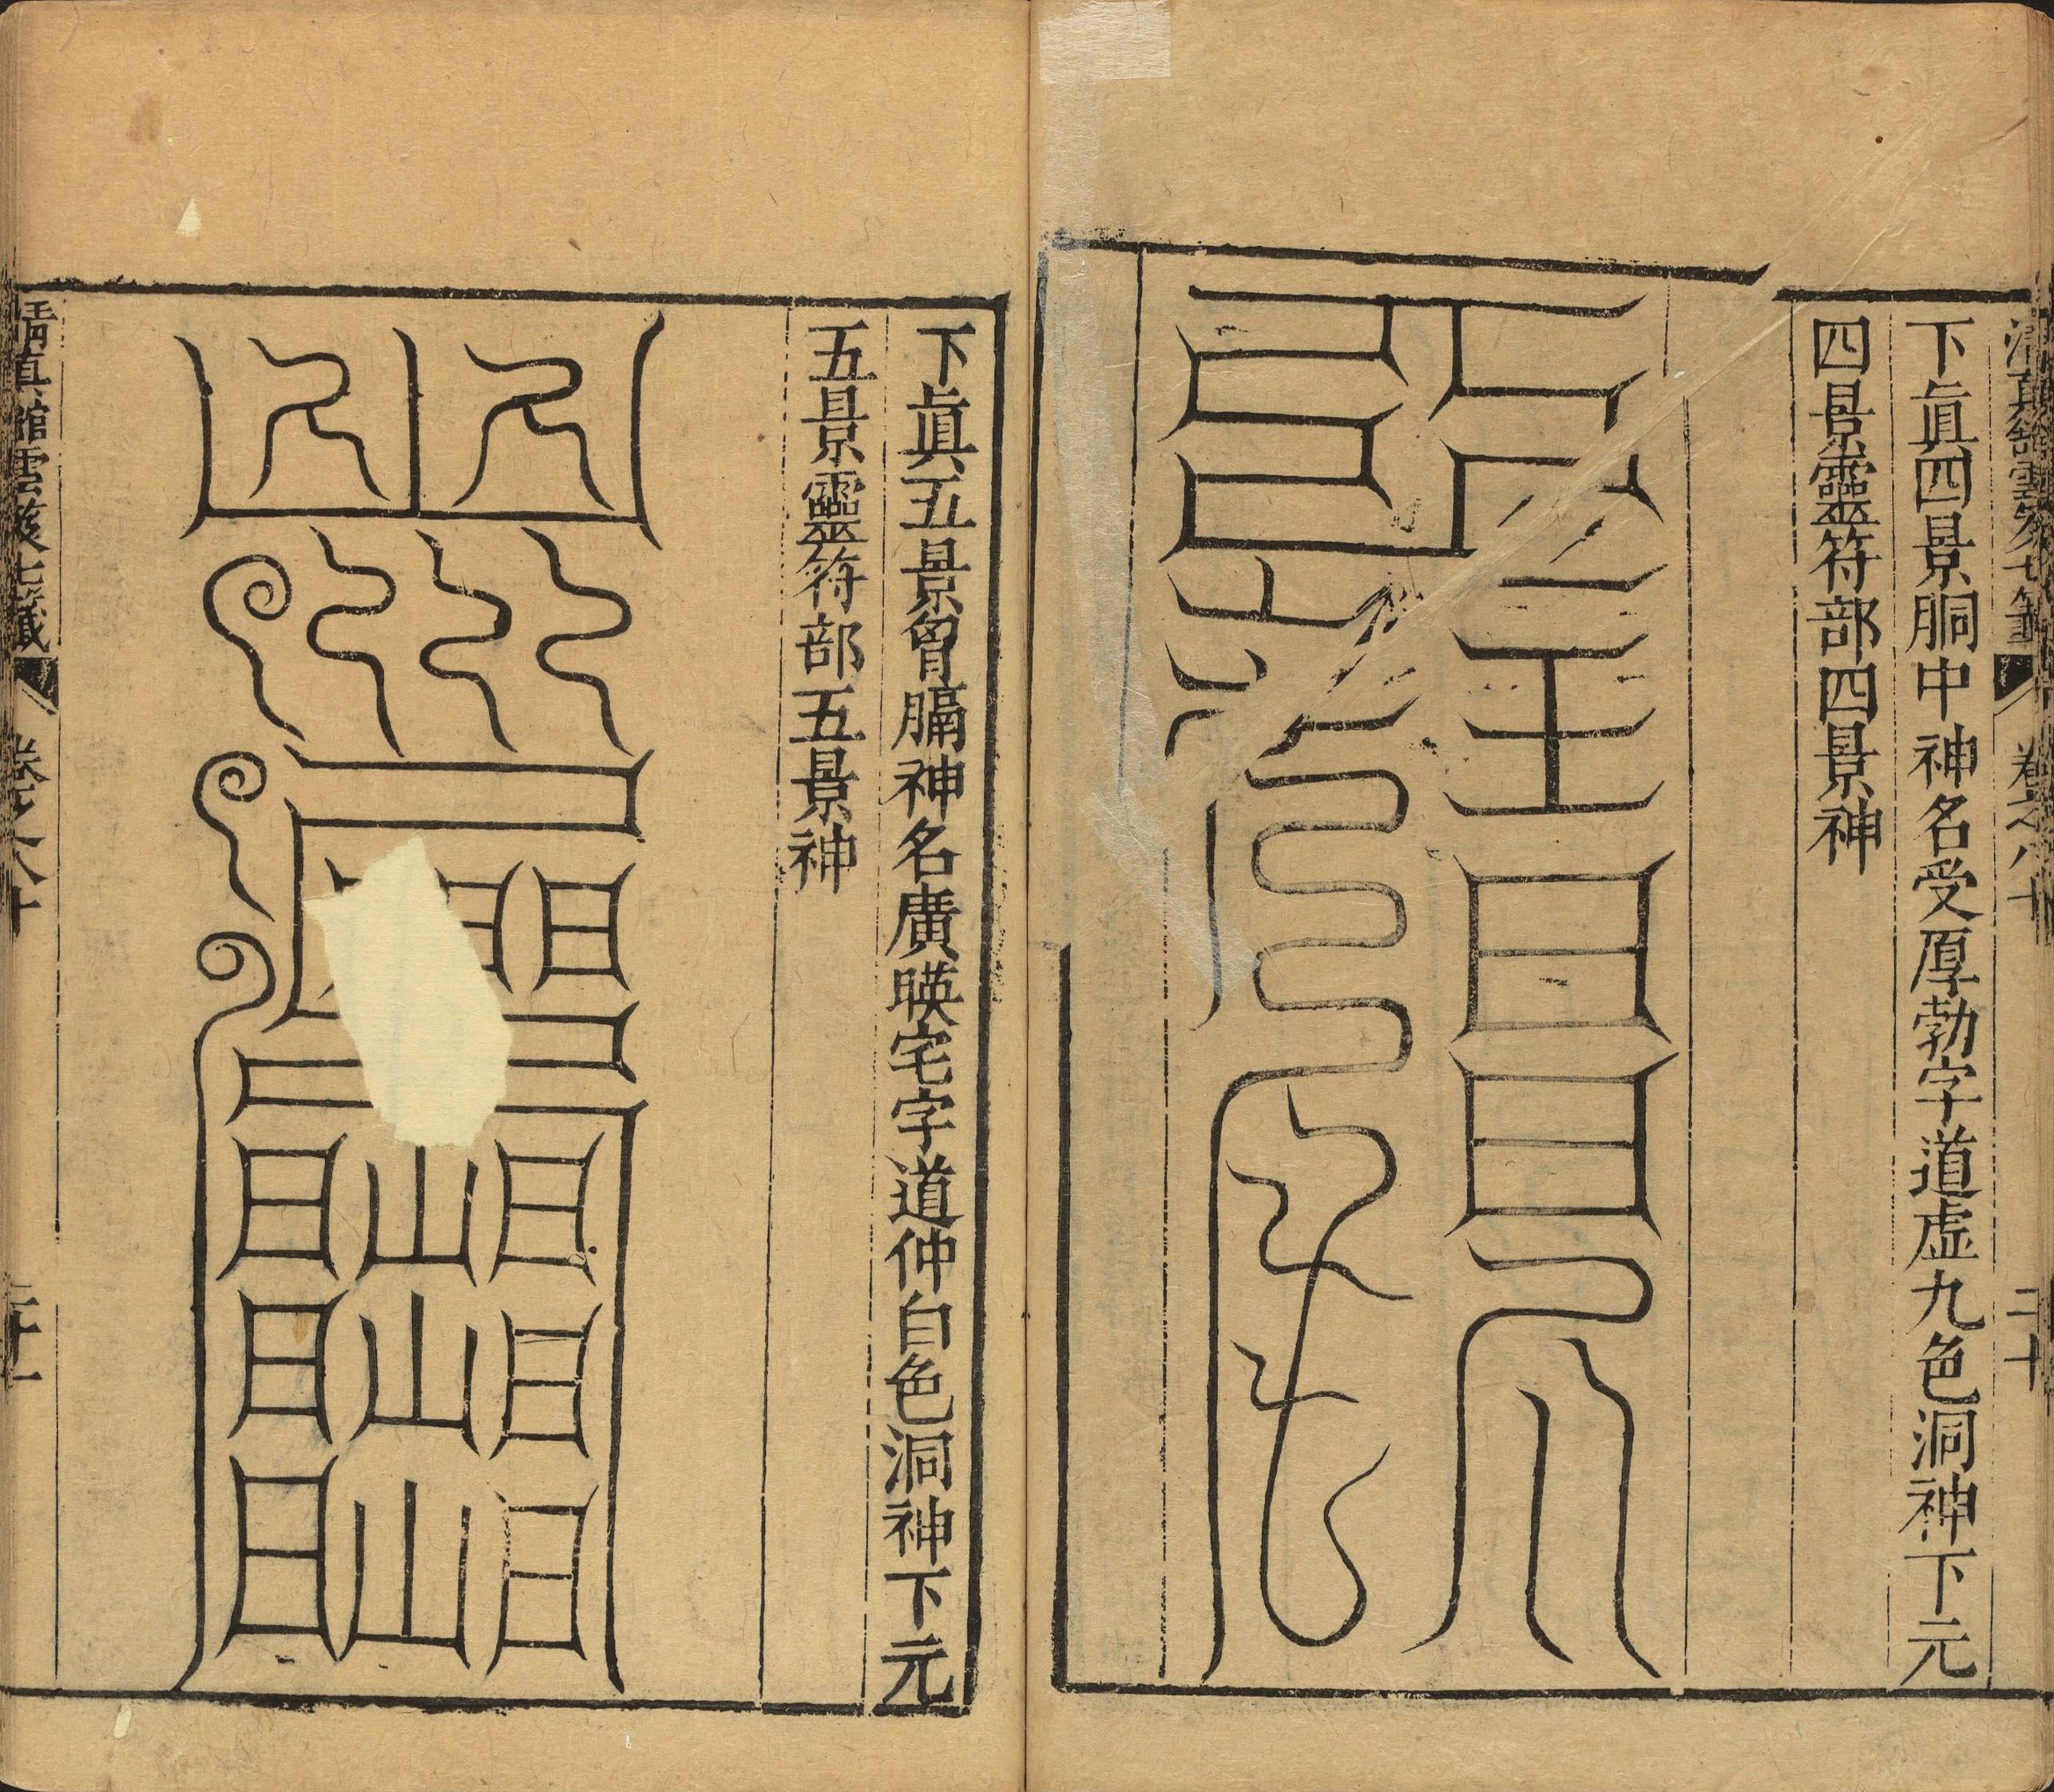 清真館雲笈七籤 卷之八十 二十
下眞四景胴中神名受厚勃字道虛九色洞神下元
四景靈符部四景神
下眞五景胷膈神名廣暎宅字道仲白色洞神下元
五景靈符部五景神
清真館雲笈七籤 卷之八十 二十一